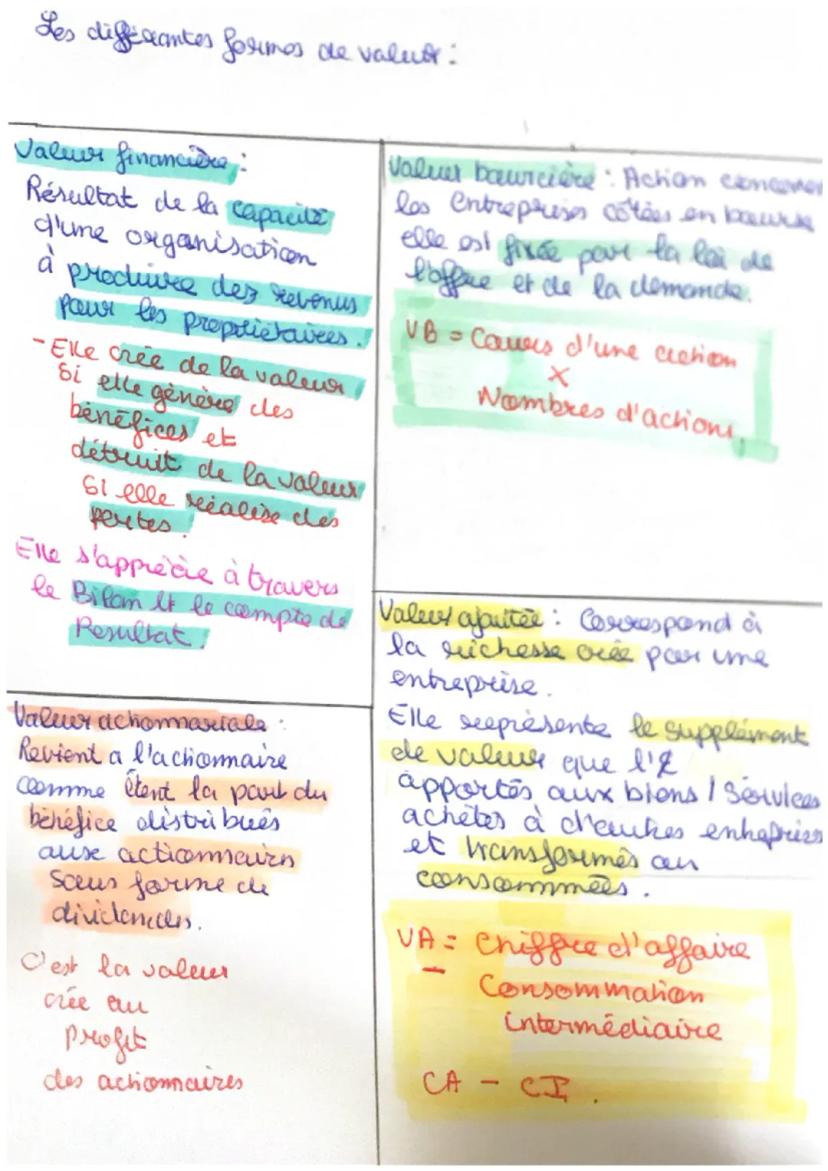 Les différentes formes de valeur :
Valeur financière :
Résultat de la capacité
d'une organisation
à produire des revenus
pour les propriétaires.
- Elle crée de la valeur
si elle génère des
bénéfices et
détruit de la valeur
Si elle réalise des
pertes.
Elle s'apprécie à travers
le Bilan et le compte de
Resultat.
Valeur boursière : Action concerner
les entreprises côtées en bourse
elle est fixée par la loi de
l'offre et de la demande.
VB = Cours d'une action
x
Nombres d'actions
Valeur actionnariale :
Revient a l'actionnaire
comme étant la part du
bénéfice distribués
aux actionnaires
sous forme de
dividendes.
C'est la valeur
crée au
profit
des actionnaires
Valeur ajoutée : Correspond à
la richesse crée par une
entreprise.
Elle représente le supplément
de valeur que l'E
apportés aux biens / Services
achetés à d'autres entreprises
et transformés ou
consommées.
VA = Chiffre d'affaire
-
Consommation
intermédiaire
CA - CI.